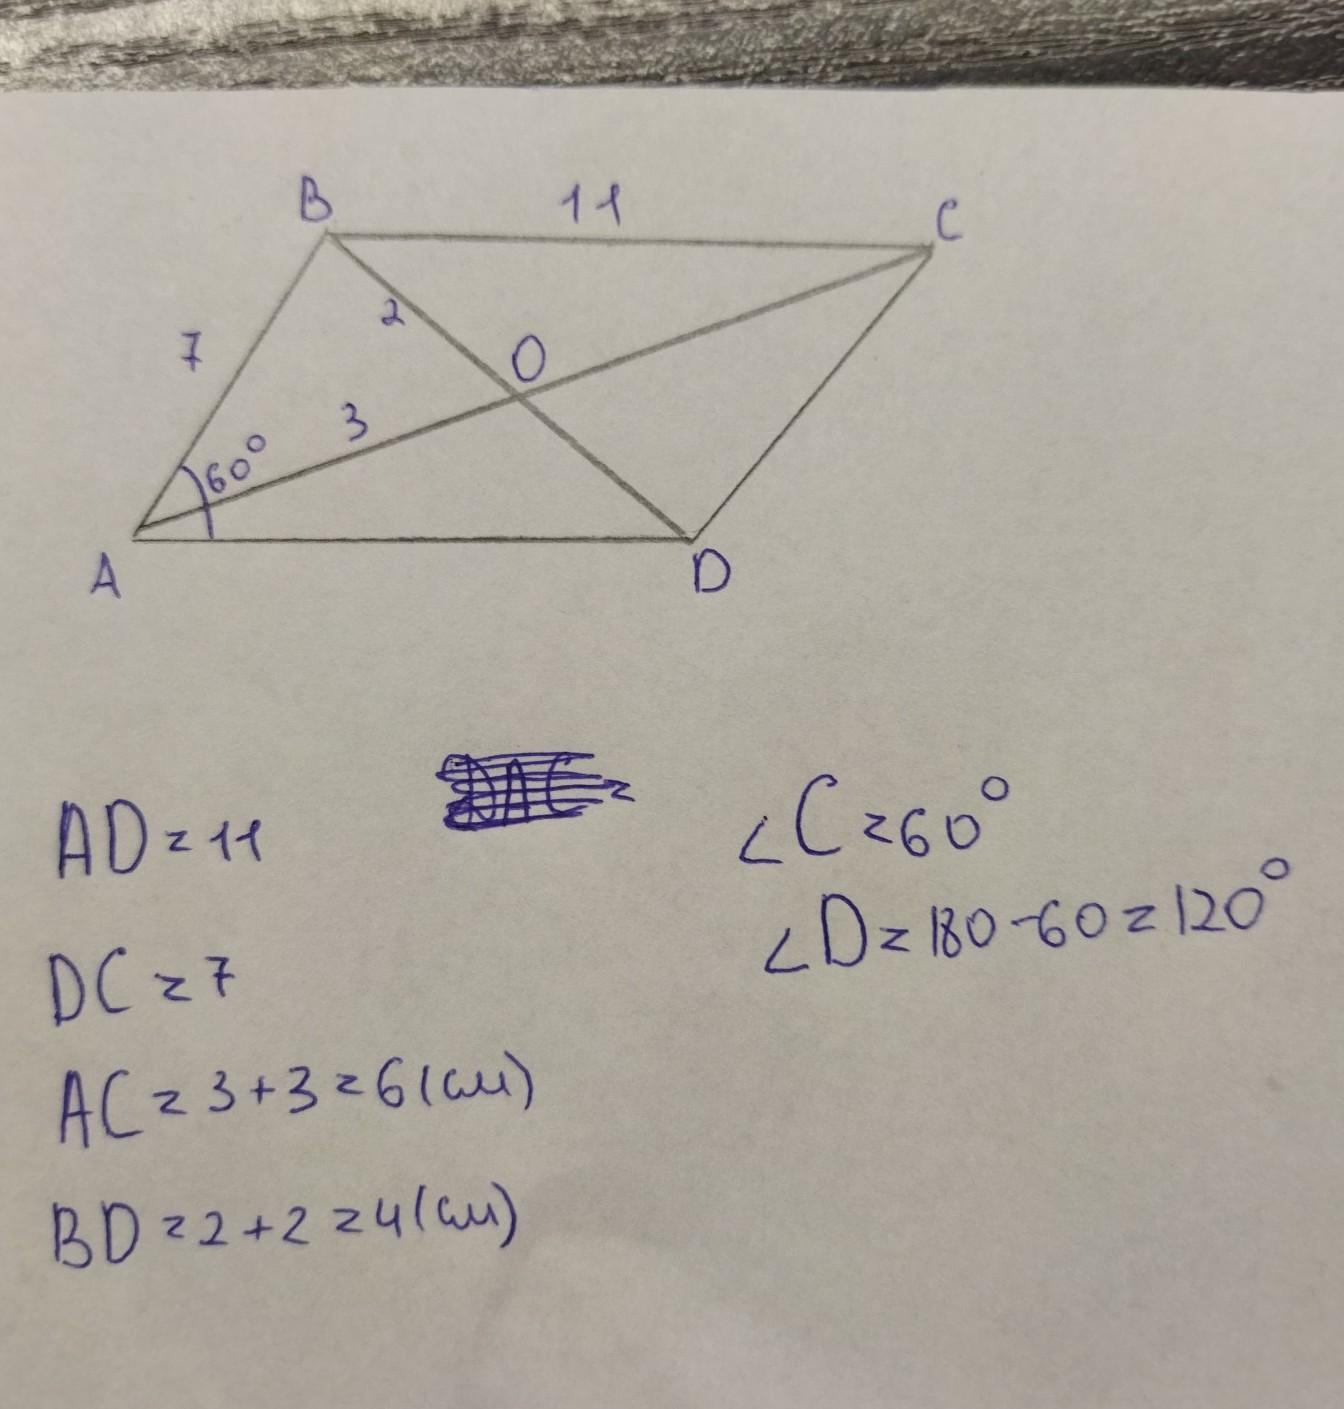 B
11
C
2
7
O
3
60°
A
D
AD = 11
DAC =
∠C = 60°
∠D = 180 - 60 = 120°
DC = 7
AC = 3 + 3 = 6 (см)
BD = 2 + 2 = 4 (см)